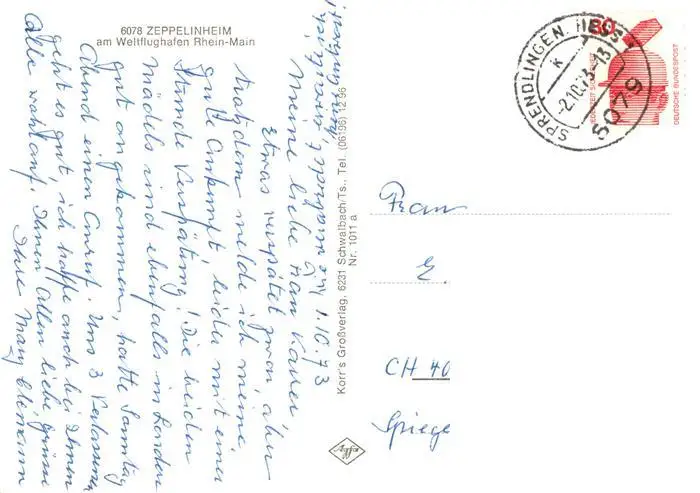 6078 ZEPPELINHEIM
am Weltflughafen Rhein-Main
1.10.73
Meine liebe Frau
Etwas verspätet zwar aber
trotzdem melde ich meine
gute Ankunft, leider mit einer
Stunde Verspätung! Die beiden
Mädels sind ebenfalls in London
gut angekommen, hatte Sonntag
Abend einen Anruf. Uns 3 Verlassenen
geht es gut, ich hoffe auch bei Ihnen
alle wohlauf. Ihnen Allen liebe Grüsse
Ihre Mary
Korr's Großverlag, 6231 Schwalbach/Ts., Tel. (06196) 12 96
Nr. 1011 a
Agfa
SPRENDLINGEN, HESS
K
-2.10.73-13
6079
80
JEDERZEIT SICHERHEIT
DEUTSCHE BUNDESPOST
Frau
E.
CH 40
Spiege